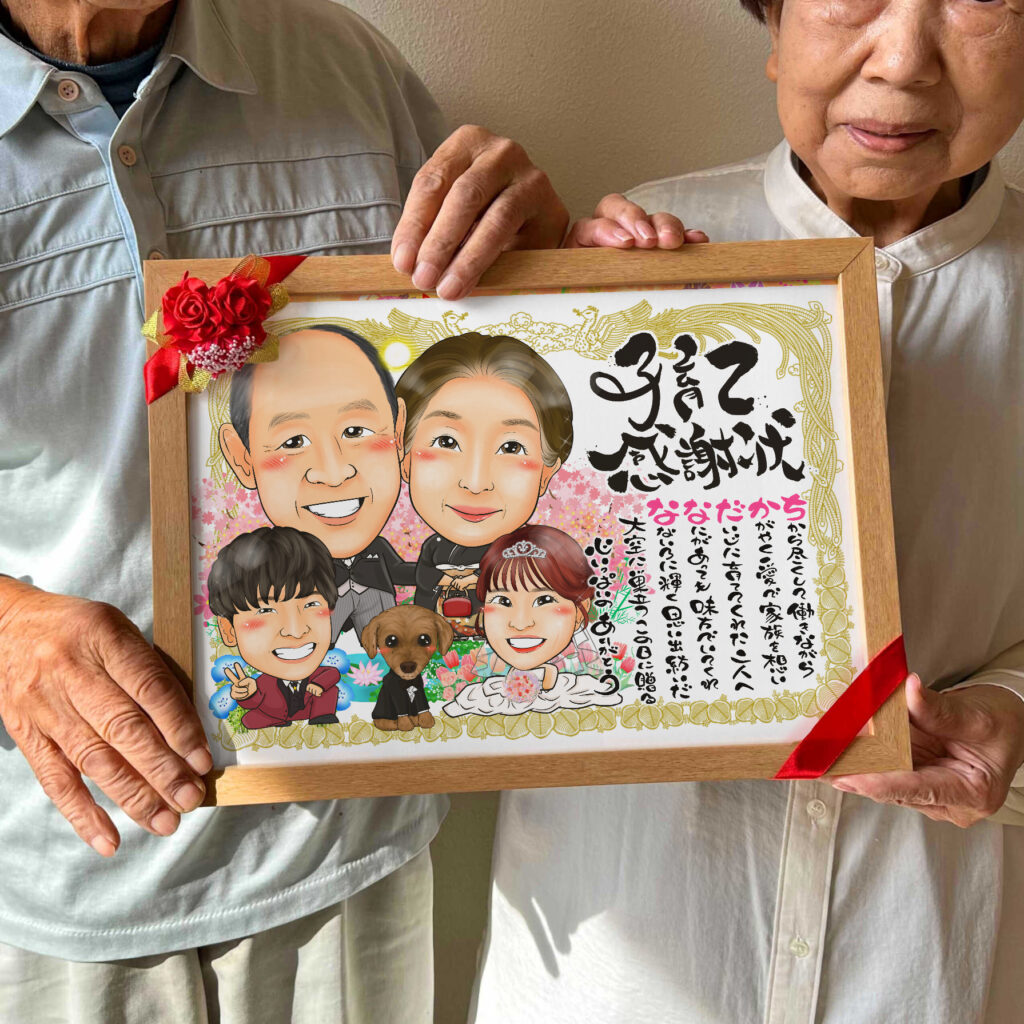 子育て
感謝状
ちから尽くして働きながら
かがやく愛で家族を想い
だいじに育ててくれた二人へ
なにがあっても味方でいてくれ
なないろに輝く思い出紡いだ
大空に巣立つ この日に贈る
いっぱいのありがとう